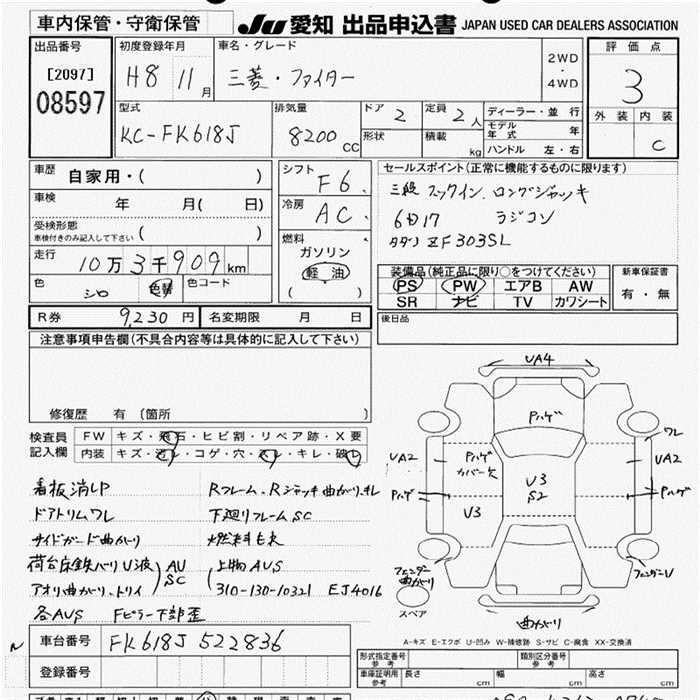 車内保管・守衛保管 JU 愛知 出品申込書 JAPAN USED CAR DEALERS ASSOCIATION
出品番号 [2097] 08597
初度登録年月 H8 11月
車名・グレード 三菱・ファイター
2WD・4WD
評価点 3
外装 内装 C
型式 KC-FK618J
排気量 8200cc
ドア 2 定員 2人
形状 積載 kg
ディーラー・並行
モデル年式 年
ハンドル 左・右
車歴 自家用・( )
車検 年 月( 日)
受検形態 車検付きのみ記入して下さい ( )
走行 10万3千909km
色 シロ 色替 色コード
シフト F6.
冷房 AC.
燃料 ガソリン 軽油 ( )
セールスポイント(正常に機能するものに限ります)
三段フックイン.ロングジャッキ
6D17 ラジコン
タダノ ZF303SL
装備品(純正品に限り○をつけてください)
PS PW エアB AW
SR ナビ TV カワシート
新車保証書 有・無
R券 9,230円 名変期限 月 日
後日品
注意事項申告欄(不具合内容等は具体的に記入して下さい)
修復歴 有 〔箇所 〕
検査員記入欄
FW キズ・飛石・ヒビ割・リペア跡・X要
内装 キズ・汚レ・コゲ・穴・スレ・キレ・破レ
看板消しP Rフレーム、Rジャッキ曲がり、キレ
ドアトリムワレ 下廻りフレームSC
サイドガード曲がり 燃料モレ
荷台床鉄バリU波 AU 上物AUS
アオリ曲がり、トリイ SC 310-130-10321 EJ4016
各AUS Fピラー下部歪
UA4
Pハゲ
ワレ
UA2 Pハゲ UA2
カバー欠
Pハゲ U3 S2 Pハゲ
U3
フェンダー曲がり フェンダーU
スペア
曲がり
A-キズ E-エクボ U-凹み W-補修跡 S-サビ C-腐食 XX-交換済
車台番号 FK618J 522836
登録番号
形式指定番号 参考 類別区分番号 参考
車庫証明用 参考 長さ cm 幅 cm 高さ cm